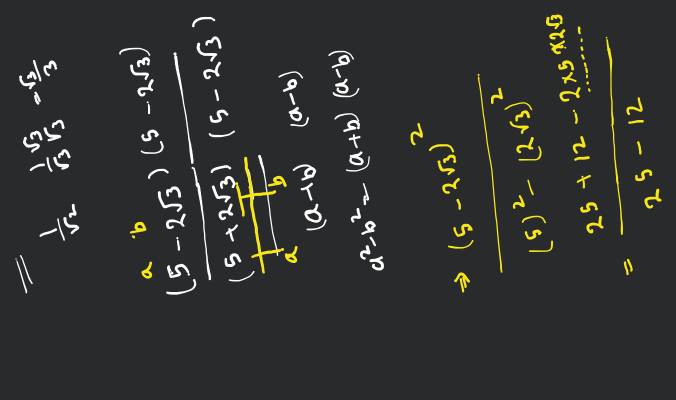 = 1/√2 1/√3 √3/√3 = √3/3
a b
(5 - 2√3) (5 - 2√3)
(5 + 2√3) (5 - 2√3)
a b
(a+b) (a-b)
a²-b² = (a+b) (a-b)
⇒ (5 - 2√3)²
(5)² - (2√3)²
= 25 + 12 - 2×5×2√3
25 - 12